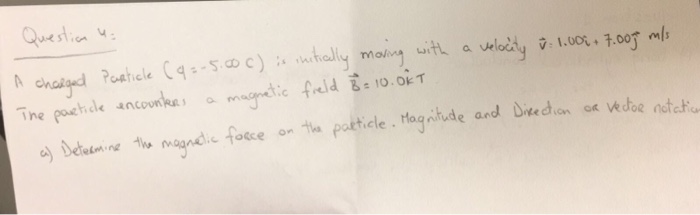 Question 4:
A charged Particle (q = -5.00 C) is initially moving with a velocity v⃗ = 1.00i + 7.00j m/s
The particle encounters a magnetic field B⃗ = 10.0k T
a) Determine the magnetic force on the particle. Magnitude and Direction or vector notatio